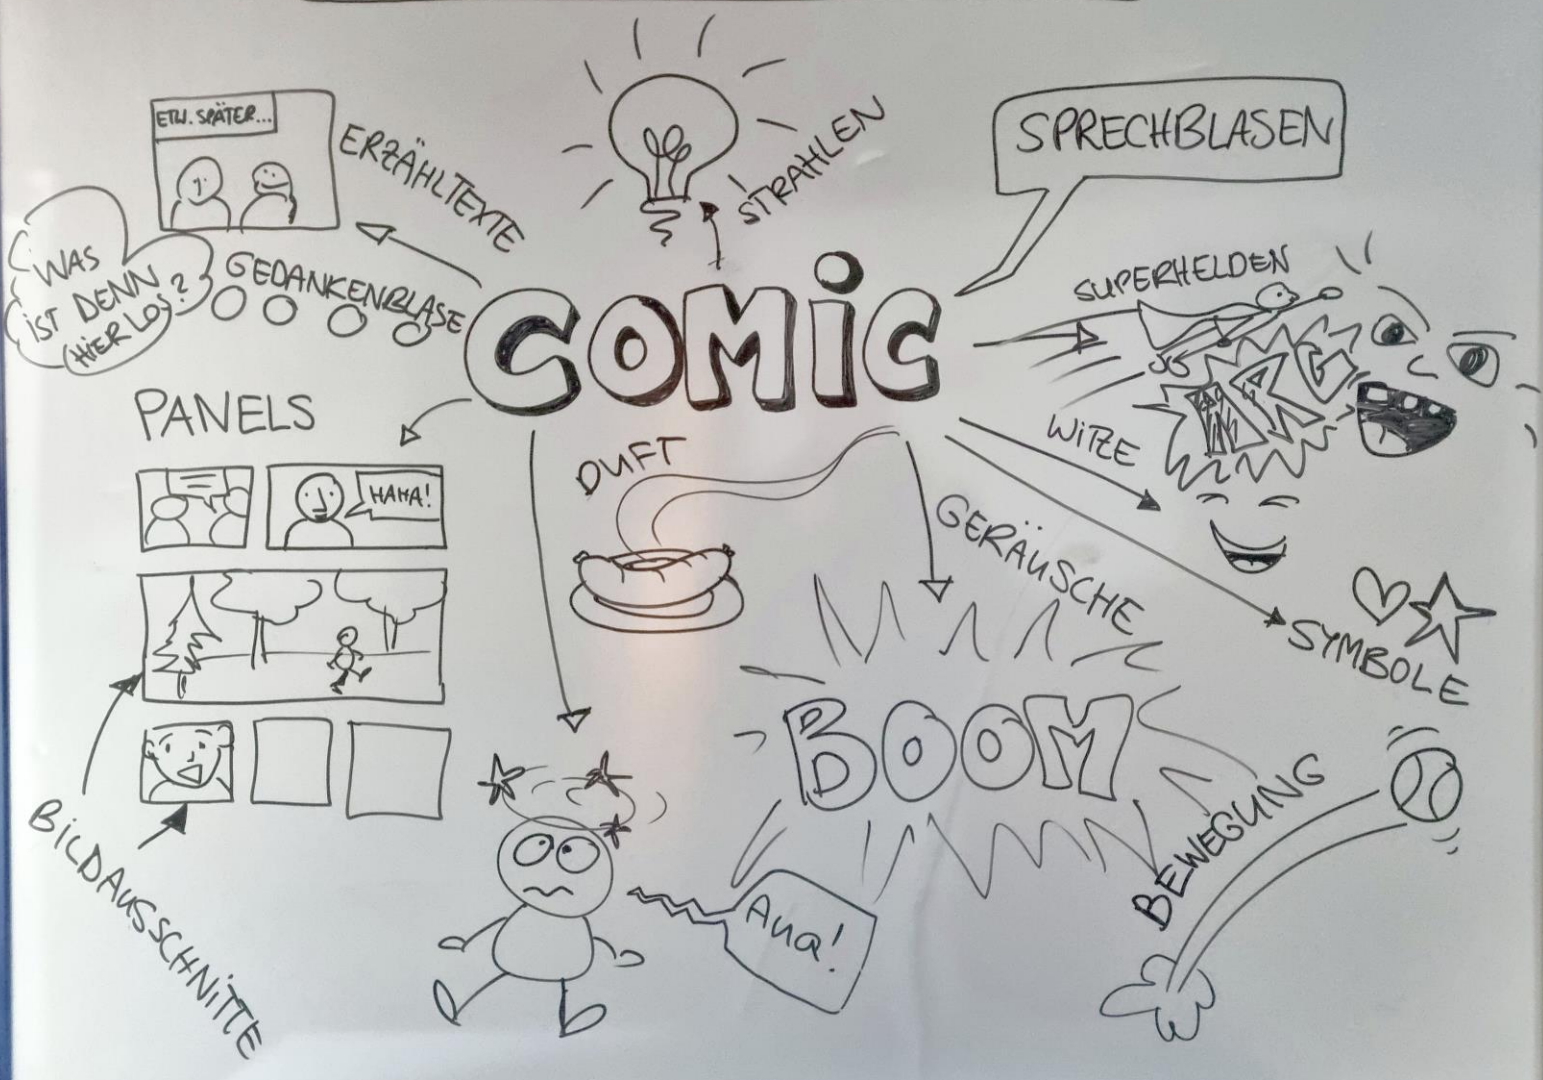 ETW. SPÄTER...
ERZÄHLTEXTE
STRAHLEN
SPRECHBLASEN
WAS
IST DENN
HIER LOS?
GEDANKENBLASE
COMiC
SUPERHELDEN
ARG
PANELS
HAHA!
DUFT
WiTZE
GERÄUSCHE
SYMBOLE
BiLDAUSSCHNiTTE
BOOM
BEWEGUNG
Aua!